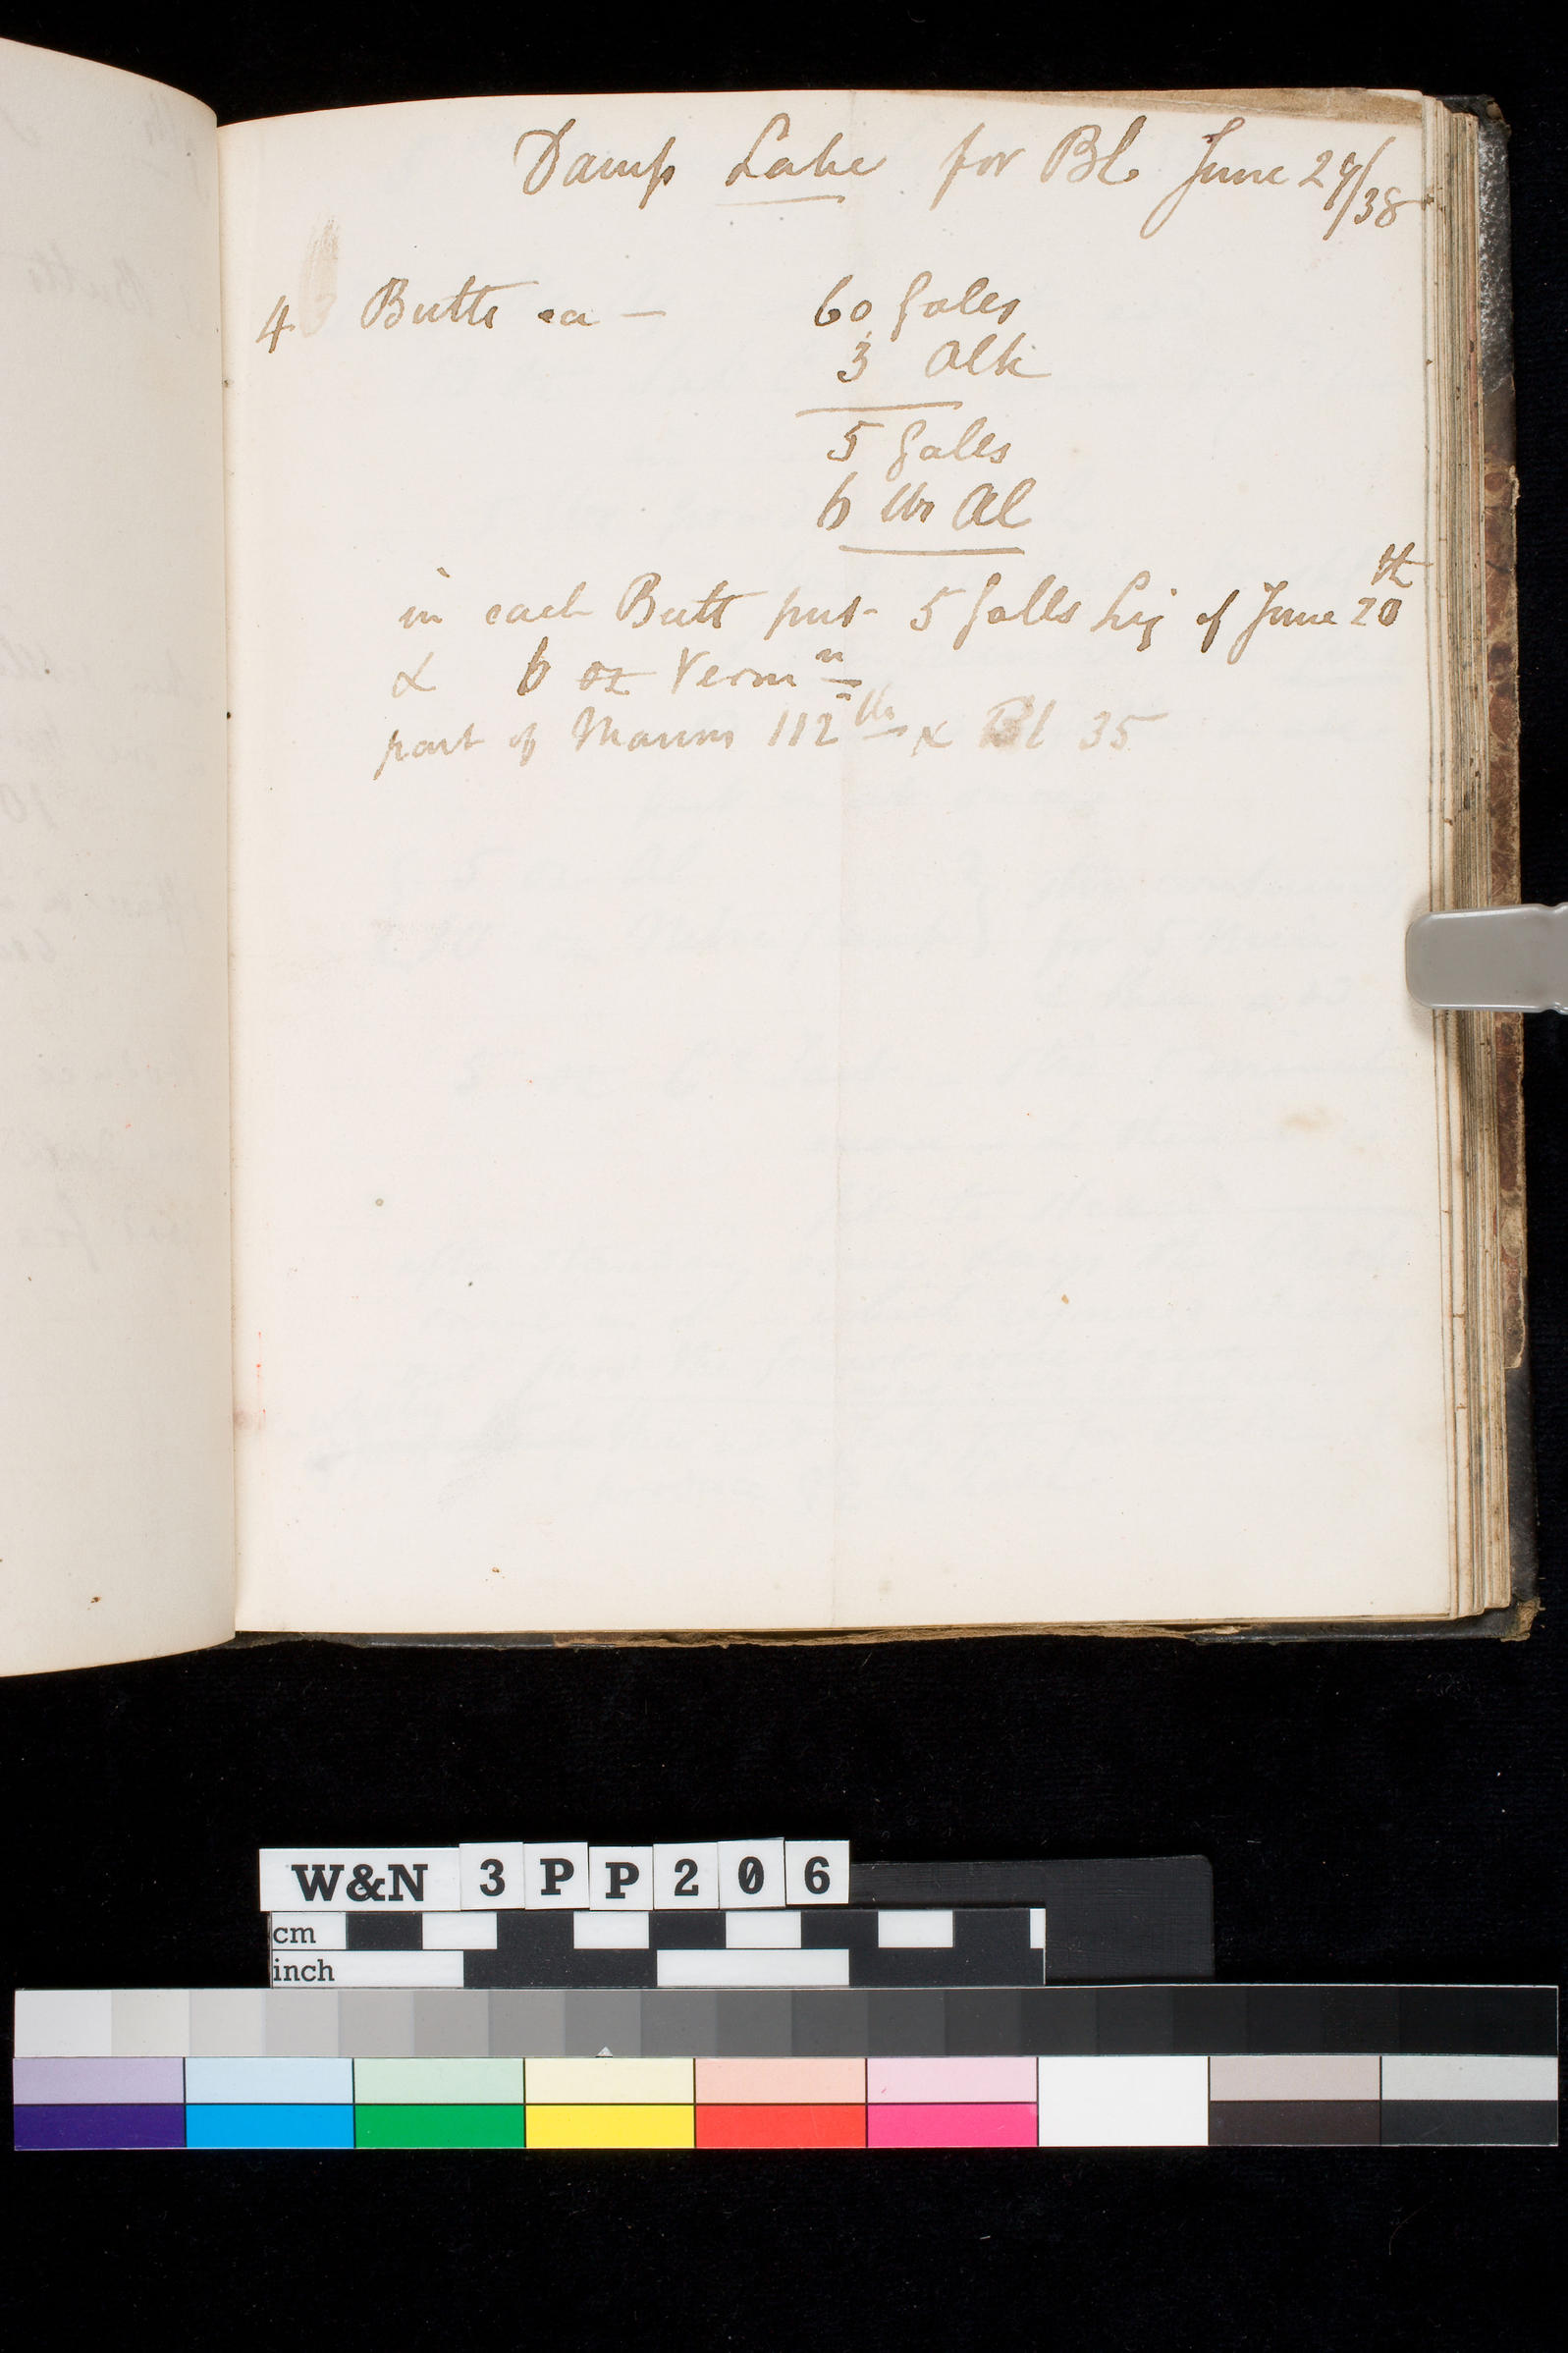 Damp Lake for Bl June 27/38
4 Butts ea — 60 Galls
3 Alk
5 Galls
6 lbs Al
in each Butt put 5 Galls Liq of June 20th
& 6 oz Vermn
part of Manns 112 lbs & Bl 35
W&N 3PP206
cm
inch